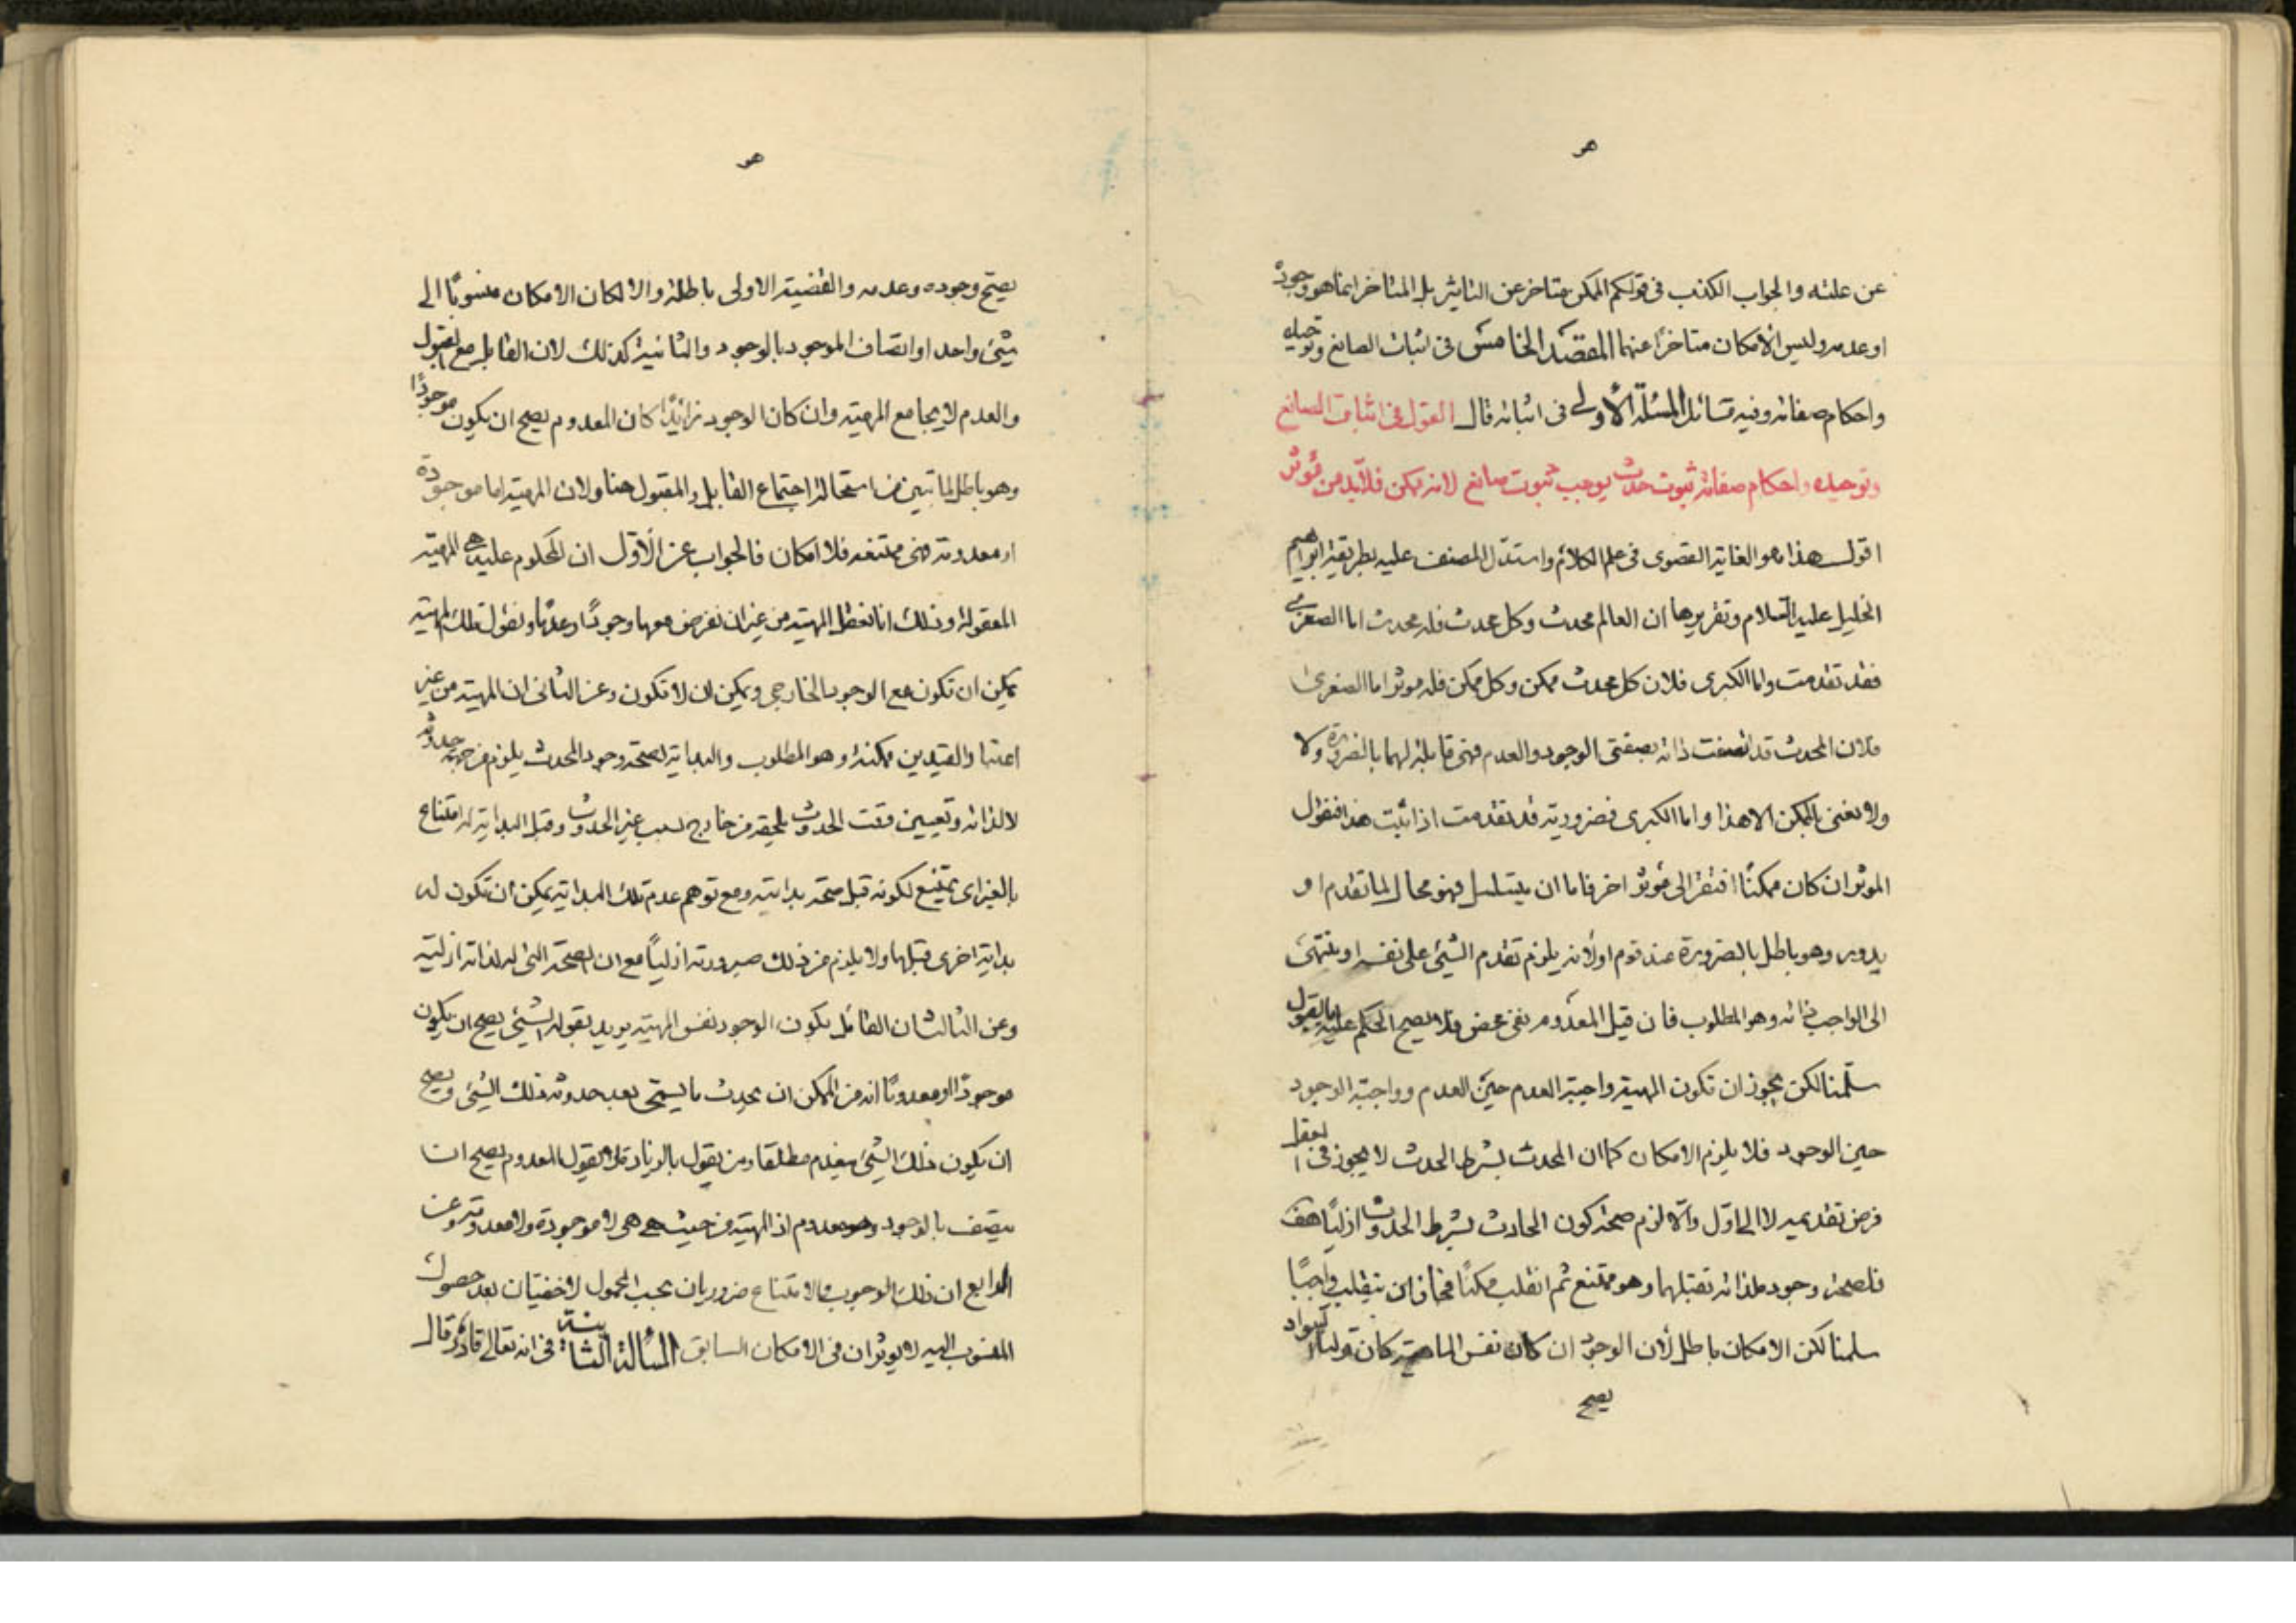 هو
عن علته والجواب الكذب فى قولكم الممكن متاخر عن التاثير بل المتاخر انما هو وجوده
او عدمه وليس الامكان متاخرًا عنهما المقصد الخامس فى اثبات الصانع وتوحيده
واحكام صفاته وفيه مسائل المسئلة الأولى فى اثباته قال القول فى اثبات الصانع
وتوحيده واحكام صفاته ثبوت حدث يوجب ثبوت صانع لانه ممكن فلابّد من مؤثر
اقول هذا هو الغاية القصوى فى علم الكلام واستدل المصنف عليه بطريقة ابراهيم
الخليل عليه السّلام وتقريرها ان العالم محدث وكل محدث فله محدث اما الصغرى
فقد تقدمت واما الكبرى فلان كل محدث ممكن وكل ممكن فله موثر اما الصغرى
فلان المحدث قد اتصفت ذاته بصفتى الوجود والعدم فهى قابلة لهما بالضرورة ولا
ولا نعنى بالممكن الا هذا واما الكبرى فضرورية قد تقدمت اذا ثبت هذا فنقول
الموثر ان كان ممكنًا افتقر الى مؤثر اخر فاما ان يتسلسل فهو محال لما تقدم او
يدور وهو باطل بالضرورة عند قوم اولأنه يلزم تقدم الشئ على نفسه او ينتهى
الى الواجب لذاته وهو المطلوب فان قيل المعدوم نفى محض فلا يصح الحكم عليه بالقبول
سلّمنا لكن يجوز ان تكون المهية واجبة العدم حين العدم وواجبة الوجود
حين الوجود فلا يلزم الامكان كما ان المحدث بشرط الحدث لا يجوز فى العقل
فرض تقديمه لا الى اوّل والّا لزم صحة كون الحادث بشرط الحدوث ازليًا هف
فلصحة وجوده لذاته تقبلها وهو ممتنع ثم انقلب ممكنًا فجاز ان ينقلب واجبًا
سلمنا لكن الامكان باطل لأن الوجود ان كان نفس الماهية كان قولنا السواد
يصح
هو
يصحّ وجوده وعدمه والقضية الاولى باطلة والا لكان الامكان منسوبًا الى
شئ واحد او اتصاف الموجود بالوجود والثانية كذلك لان القابل مع المقبول
والعدم لا يجامع المهية وان كان الوجود زائدًا كان المعدوم يصح ان يكون موجودًا
وهو باطل لما تبين من استحالة اجتماع القابل والمقبول هنا ولان المهية اما موجودة
او معدومة فهى ممتنعه فلا امكان فالجواب عن الأوّل ان المحكوم عليه هى المهية
المعقولة وذلك انا نعقل المهية من غير ان نفرض معها وجودًا وعدمًا ونقول تلك المهية
يمكن ان تكون مع الوجود الخارجى ويمكن ان لا تكون وعن الثانى ان المهية من غير
اعتبار القيدين ممكنة وهو المطلوب والبداية لصحة وجود المحدث يلزم من جهة حدوثه
لا لذاته وتعيين وقت الحدوث يلحقه من خارج بسبب غير الحدوث وقبل البداية له امتناع
بالغير اى يمتنع لكونه قبل صحة بدايته ومع توهم عدم تلك البداية يمكن أن تكون له
بداية اخرى قبلها ولا يلزم من ذلك صيرورته ازليًا مع ان الصحة التى له لذاته ازلية
وعن الثالث ان القائل بكون الوجود نفس المهية يريد بقوله الشئ يصح ان يكون
موجودًا او معدومًا انه من الممكن ان يحدث ما يسمى بعد حدوثه ذلك الشئ ويصح
ان يكون ذلك الشئ ينعدم مطلقا ومن يقول بالزيادة لا يقول المعدوم يصح ان
يتصف بالوجود وهو معدوم اذ المهية من حيث هى هى لا موجودة ولا معدومة وعن
الرابع ان ذلك الوجوب والامتناع ضروريان بحسب المحمول لاحقيان بعد حصول
المنسوب اليه لا يوثران فى الامكان السابق المسألة الثانية فى انه تعالى قادر قال